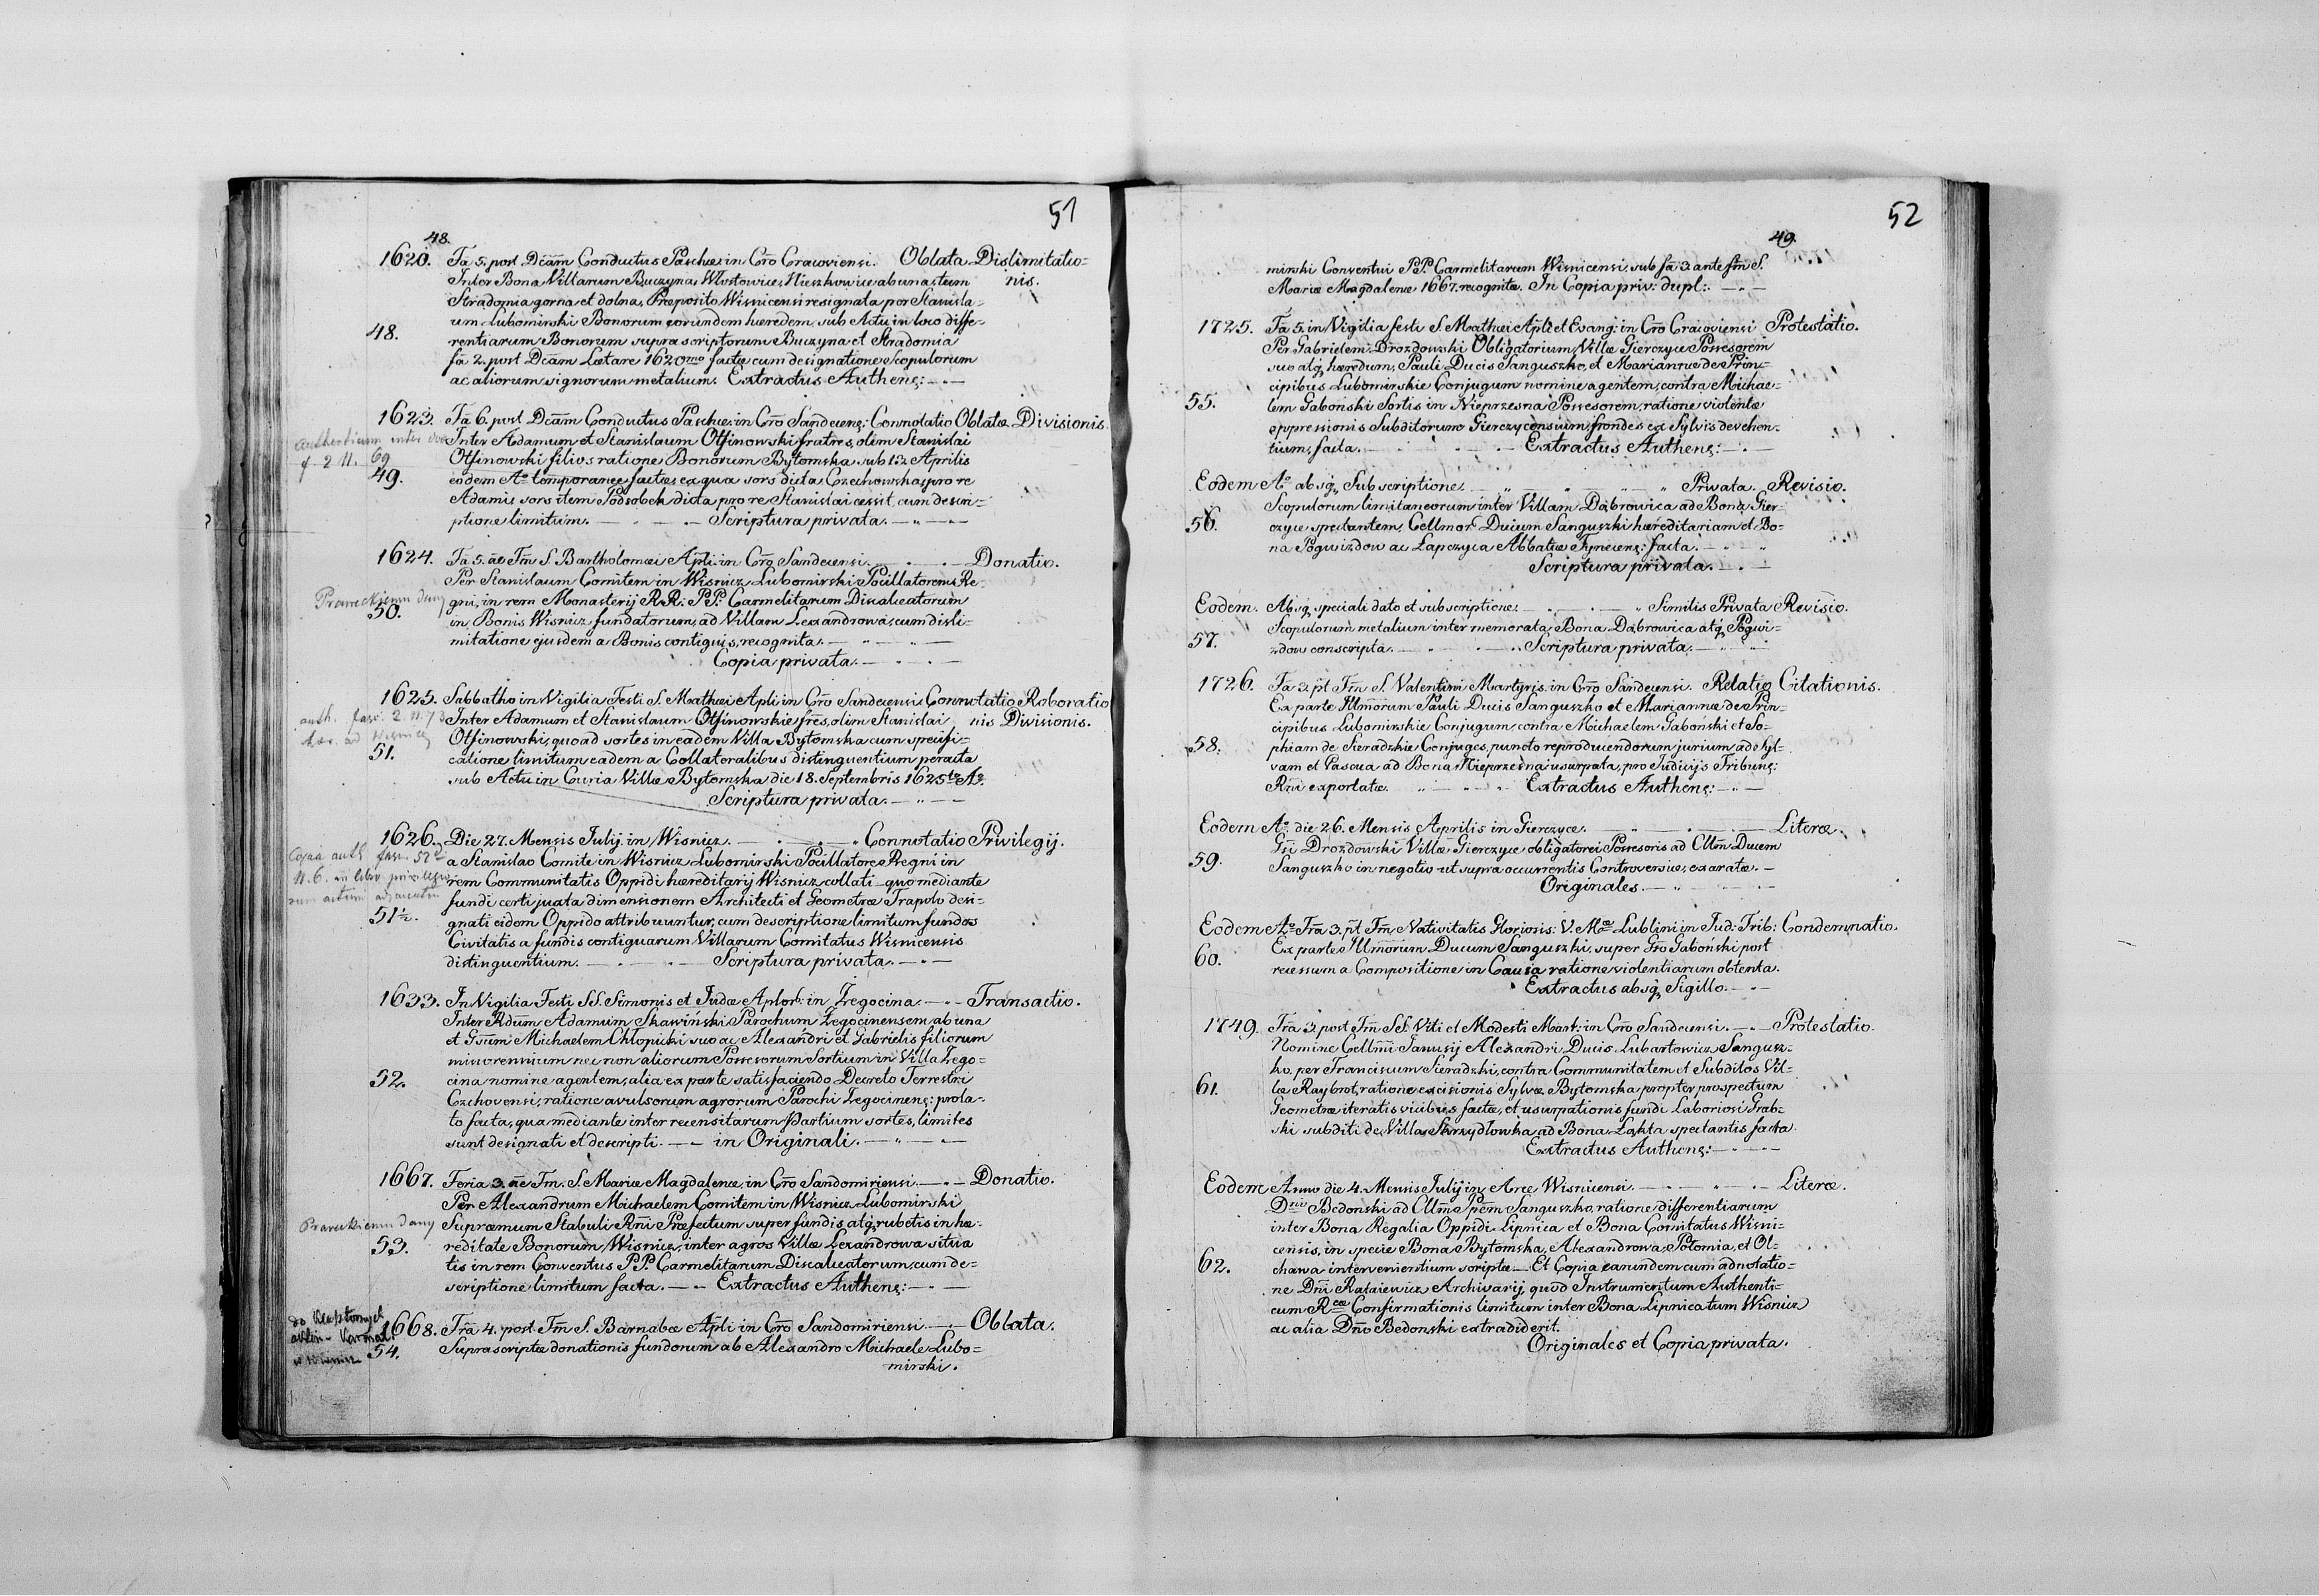 51
48.
1620. Fa 5. post Dcam Conductus Paschæ in Cro Cracoviensi. Oblata Dislimitatio=
Inter Bona Villarum Buczyna, Wlostowice, Nieszkowice ab una, tum nis.
Stradomia gorna et dolna, Præposito Wisnicensi resignata per Stanisla=
um Lubomirski Bonorum eorundem hæredem, sub Actu in loco diffe=
48. rentiarum Bonorum supra scriptorum Buczyna et Stradomia
fa 2. post Dcam Lætare 1620mo factæ cum designatione Scopulorum
ac aliorum signorum metalium. Extractus Authens:
1623. Fa 6. post Dcam Conductus Paschæ in Cro Sandecens: Connotatio Oblatæ Divisionis.
authenticum inter
Inter Adamum et Stanislaum Otfinowski fratres, olim Stanislai
f 2 N. 69
Otfinowski filios ratione Bonorum Bytomska sub 12 Aprilis
49. eodem Ao temporaneæ factæ, ex qua sors dicta Czechowska pro re
Adami, sors item Podsobek dicta pro re Stanislai cessit, cum descri=
ptione limitum. Scriptura privata.
1624. Fa 5. ae Fm S. Bartholomæi Apli in Cro Sandecensi. Donatio.
Per Stanislaum Comitem in Wisnicz Lubomirski Pocillatorem Re=
Prawekiemu dany
gni, in rem Monasterij RR. PP. Carmelitarum Discalceatorum
50. in Bonis Wisnicz fundatorum, ad Villam Lexandrowa, cum disli=
mitatione ejusdem a Bonis contiguis, recognita.
Copia privata.
1625. Sabbatho in Vigilia Festi S. Mathæi Apli in Cro Sandecensi Connotatio Roboratio
auth. fasc. 2. N. 73
Inter Adamum et Stanislaum Otfinowskie fres, olim Stanislai nis Divisionis.
Otfinowski, quoad sortes in eadem Villa Bytomska cum specifi=
51. catione limitum eadem a Collateralibus distinguentium peracta
sub Actu in Curia Villæ Bytomska die 18. Septembris 1625to Ao.
Scriptura privata.
1626. Die 27. Mensis Julij in Wisnicz. Connotatio Privilegij.
Copia auth. fasc. 52
a Stanislao Comite in Wisnicz Lubomirski Pocillatore Regni in
N. 6. in libr. privilegio
rem Communitatis Oppidi hæreditarij Wisnicz collati quo mediante
fundi certi juxta dimensionem Architecti et Geometræ Trapolo desi=
51½. gnati eidem Oppido attribuuntur, cum descriptione limitum fundos
Civitatis a fundis contiguarum Villarum Comitatus Wisnicensis
distinguentium. Scriptura privata.
1633. In Vigilia Festi SS. Simonis et Judæ Aplor: in Zegocina. Transactio.
Inter Rdum Adamum Skawiński Parochum Zegocinensem ab una
et Gsum Michaelem Chłopicki suo ac Alexandri et Gabrielis filiorum
minorennium nec non aliorum Possesorum Sortium in Villa Zego=
52. cina nomine agentem, alia ex parte satisfaciendo Decreto Terrestri
Czchovensi, ratione avulsorum agrorum Parochi Zegocinens: prola=
to facta, qua mediante inter recensitarum partium sortes, limites
sunt designati et descripti. in Originali.
1667. Feria 3. ae Fm. S. Mariæ Magdalenæ, in Cro Sandomiriensi. Donatio.
Per Alexandrum Michaelem Comitem in Wisnicz Lubomirski
Prawekiemu dany
Supremum Stabuli Rni Præfectum super fundis, atq, rubetis in hæ=
53. reditate Bonorum Wisnicz, inter agros Villæ Lexandrowa situa
tis in rem Conventus PP. Carmelitarum Discalceatorum, cum de=
scriptione limitum facta. Extractus Authens:
do Klasztornych
aktów Karmel.
w Wisniczu
1668. Fra 4. post Fm S. Barnabæ Apli in Cro Sandomiriensi. Oblata.
54. Suprascriptæ donationis fundorum ab Alexandro Michaele Lubo=
mirski.
52
49.
mirski Conventui PP. Carmelitarum Wisnicensi, sub fa 3. ante fm S.
Mariæ Magdalenæ 1667. recognitæ. In Copia priv: dupl:
1725. Fa 5. in Vigilia festi S. Mathæi Apli et Evang: in Cro Cracoviensi Protestatio.
Per Gabrielem Drozdowski Obligatorium Villæ Gierczyce Possesorem
suo atq, hæredum, Pauli Ducis Sanguszko, et Mariannæ de Prin=
cipibus Lubomirskie Conjugum nomine agentem, contra Michae=
55. lem Gaboński Sortis in Nieprzesna Possesorem, ratione violentæ
oppressionis Subditorum Gierczycensium, frondes ex Sylvis devehen=
tium, facta. Extractus Authens:
Eodem Ao. absq, Subscriptione. Privata Revisio.
Scopulorum limitaneorum inter Villam Dąbrowica ad Bona Gier=
56. czyce spectantem, Cellmor Ducum Sanguszki hæreditariam et Bo=
na Pogwizdow ac Łapczyca Abbatiæ Tynecens: facta.
Scriptura privata.
Eodem. Absq, speciali dato et subscriptione. Similis Privata Revisio.
Scopulorum metalium inter memorata Bona Dąbrowica atq, Pogwi=
57. zdow conscripta. Scriptura privata.
1726. Fa 3. pt Fm S. Valentini Martyris. in Cro Sandecensi. Relatio Citationis.
Ex parte Illmorum Pauli Ducis Sanguszko et Mariannæ de Prin=
cipibus Lubomirskie Conjugum, contra Michaelem Gaboński et So=
58. phiam de Sieradzkie Conjuges, puncto reproducendorum jurium ad Syl=
vam et Pascua ad Bona Nieprzesna usurpata, pro Judicijs Tribuns:
Rni exportatæ. Extractus Authens:
Eodem Ao. die 26. Mensis Aprilis in Gierczyce. Literæ.
Gsi Drozdowski Villæ Gierczyce obligatorei Possesoris ad Cllm Ducem
59. Sanguszko in negotio ut supra occurrentis Controversiæ, exaratæ.
Originales.
Eodem Ao Fra 3. pt Fm Nativitatis Gloriosis: V. Mæ Lublini in Jud: Trib: Condemnatio.
Ex parte Illmorum Ducum Sanguszki, super Gso Gaboński post
60. recessum a Compositione in Causa ratione violentiarum obtenta.
Extractus absq, Sigillo.
1749. Fra 3. post Fm SS. Viti et Modesti Mart: in Cro Sandecensi. Protestatio.
Nomine Cellmi Janusij Alexandri Ducis Lubartowicz Sangusz=
ko, per Franciscum Sieradzki, contra Communitatem et Subditos Vil=
61. læ Raybrot, ratione excisionis Sylvæ Bytomska propter prospectum
Geometræ iteratis vicibus factæ, et usurpationis fundi Laboriosi Grab=
ski subditi de Villa Skrzydlowka ad Bona Łąkta spectantis facta.
Extractus Authens:
Eodem Anno die 4. Mensis Julij in Arce Wisnicensi. Literæ.
Dni Bedonski ad Cllm Ppem Sanguszko, ratione differentiarum
inter Bona Regalia Oppidi Lipnica et Bona Comitatus Wisni=
censis, in specie Bona Bytomska, Alexandrowa, Połomia, et Ol=
62. chawa intervenientium scriptæ. Et Copia earundem cum adnotatio=
ne Dni Rataiewicz Archivarij, quod Instrumentum Authenti=
cum Rææ Confirmationis limitum inter Bona Lipnica tum Wisnicz
ac alia Dno Bedonski extradiderit.
Originales et Copia privata.